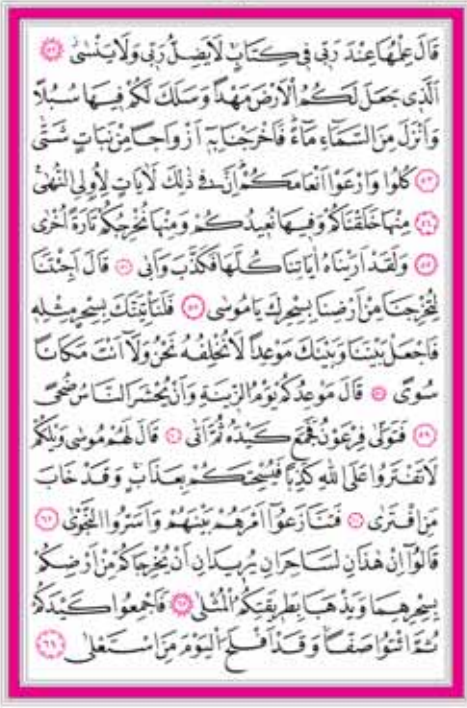 قَالَ عِلْمُهَا عِنْدَ رَبّ۪ي ف۪ي كِتَابٍۚ لَا يَضِلُّ رَبّ۪ي وَلَا يَنْسٰىۘ ﴿٥٢﴾
اَلَّذ۪ي جَعَلَ لَكُمُ الْاَرْضَ مَهْدًا وَسَلَكَ لَكُمْ ف۪يهَا سُبُلًا
وَاَنْزَلَ مِنَ السَّمَٓاءِ مَٓاءًۜ فَاَخْرَجْنَا بِه۪ٓ اَزْوَاجًا مِنْ نَبَاتٍ شَتّٰى
﴿٥٣﴾ كُلُوا وَارْعَوْا اَنْعَامَكُمْۜ اِنَّ ف۪ي ذٰلِكَ لَاٰيَاتٍ لِاُو۬لِي النُّهٰى۟
﴿٥٤﴾ مِنْهَا خَلَقْنَاكُمْ وَف۪يهَا نُع۪يدُكُمْ وَمِنْهَا نُخْرِجُكُمْ تَارَةً اُخْرٰى
﴿٥٥﴾ وَلَقَدْ اَرَيْنَاهُ اٰيَاتِنَا كُلَّهَا فَكَذَّبَ وَاَبٰى ﴿٥٦﴾ قَالَ اَجِئْتَنَا
لِتُخْرِجَنَا مِنْ اَرْضِنَا بِسِحْرِكَ يَا مُوسٰى ﴿٥٧﴾ فَلَنَأْتِيَنَّكَ بِسِحْرٍ مِثْلِه۪
فَاجْعَلْ بَيْنَنَا وَبَيْنَكَ مَوْعِدًا لَا نُخْلِفُهُ نَحْنُ وَلَٓا اَنْتَ مَكَانًا
سُوًى ﴿٥٨﴾ قَالَ مَوْعِدُكُمْ يَوْمُ الزّ۪ينَةِ وَاَنْ يُحْشَرَ النَّاسُ ضُحًى
﴿٥٩﴾ فَتَوَلّٰى فِرْعَوْنُ فَجَمَعَ كَيْدَهُ ثُمَّ اَتٰى ﴿٦٠﴾ قَالَ لَهُمْ مُوسٰى وَيْلَكُمْ
لَا تَفْتَرُوا عَلَى اللّٰهِ كَذِبًا فَيُسْحِتَكُمْ بِعَذَابٍۚ وَقَدْ خَابَ
مَنِ افْتَرٰى ﴿٦١﴾ فَتَنَازَعُٓوا اَمْرَهُمْ بَيْنَهُمْ وَاَسَرُّوا النَّجْوٰى ﴿٦٢﴾
قَالُٓوا اِنْ هٰذَانِ لَسَاحِرَانِ يُر۪يدَانِ اَنْ يُخْرِجَاكُمْ مِنْ اَرْضِكُمْ
بِسِحْرِهِمَا وَيَذْهَبَا بِطَر۪يقَتِكُمُ الْمُثْلٰى ﴿٦٣﴾ فَاَجْمِعُوا كَيْدَكُمْ
ثُمَّ ائْتُوا صَفًّاۚ وَقَدْ اَفْلَحَ الْيَوْمَ مَنِ اسْتَعْلٰى ﴿٦٤﴾